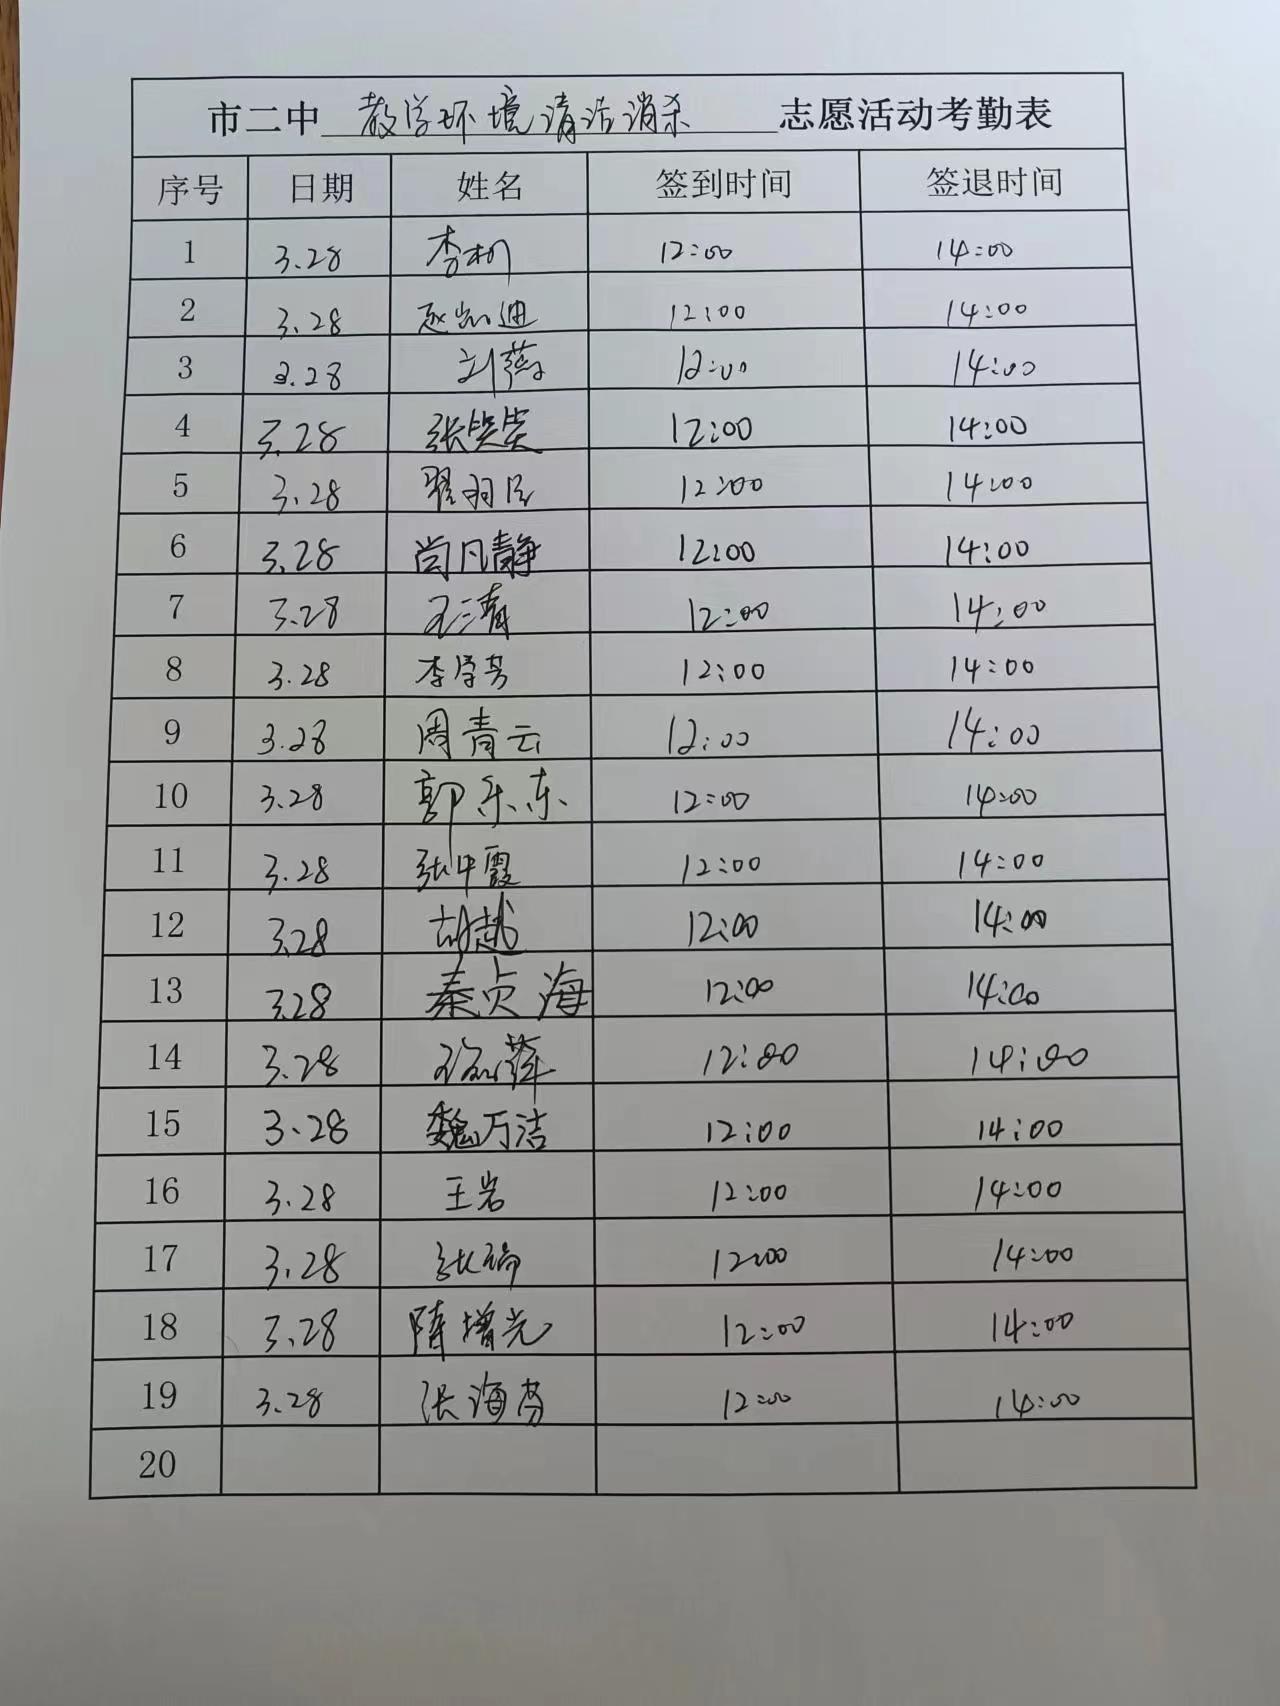 市二中 教学环境清洁消杀 志愿活动考勤表
序号 日期 姓名 签到时间 签退时间
1 3.28 12:00 14:00
2 3.28 赵凯迪 12:00 14:00
3 3.28 刘燕 12:00 14:00
4 3.28 张笑笑 12:00 14:00
5 3.28 翟羽臣 12:00 14:00
6 3.28 尚凡静 12:00 14:00
7 3.28 王三青 12:00 14:00
8 3.28 李学芳 12:00 14:00
9 3.28 周青云 12:00 14:00
10 3.28 郭乐东 12:00 14:00
11 3.28 张中霞 12:00 14:00
12 3.28 胡越 12:00 14:00
13 3.28 秦贞海 12:00 14:00
14 3.28 12:00 14:00
15 3.28 魏万洁 12:00 14:00
16 3.28 王岩 12:00 14:00
17 3.28 张瑞 12:00 14:00
18 3.28 陈增光 12:00 14:00
19 3.28 张海芬 12:00 14:00
20